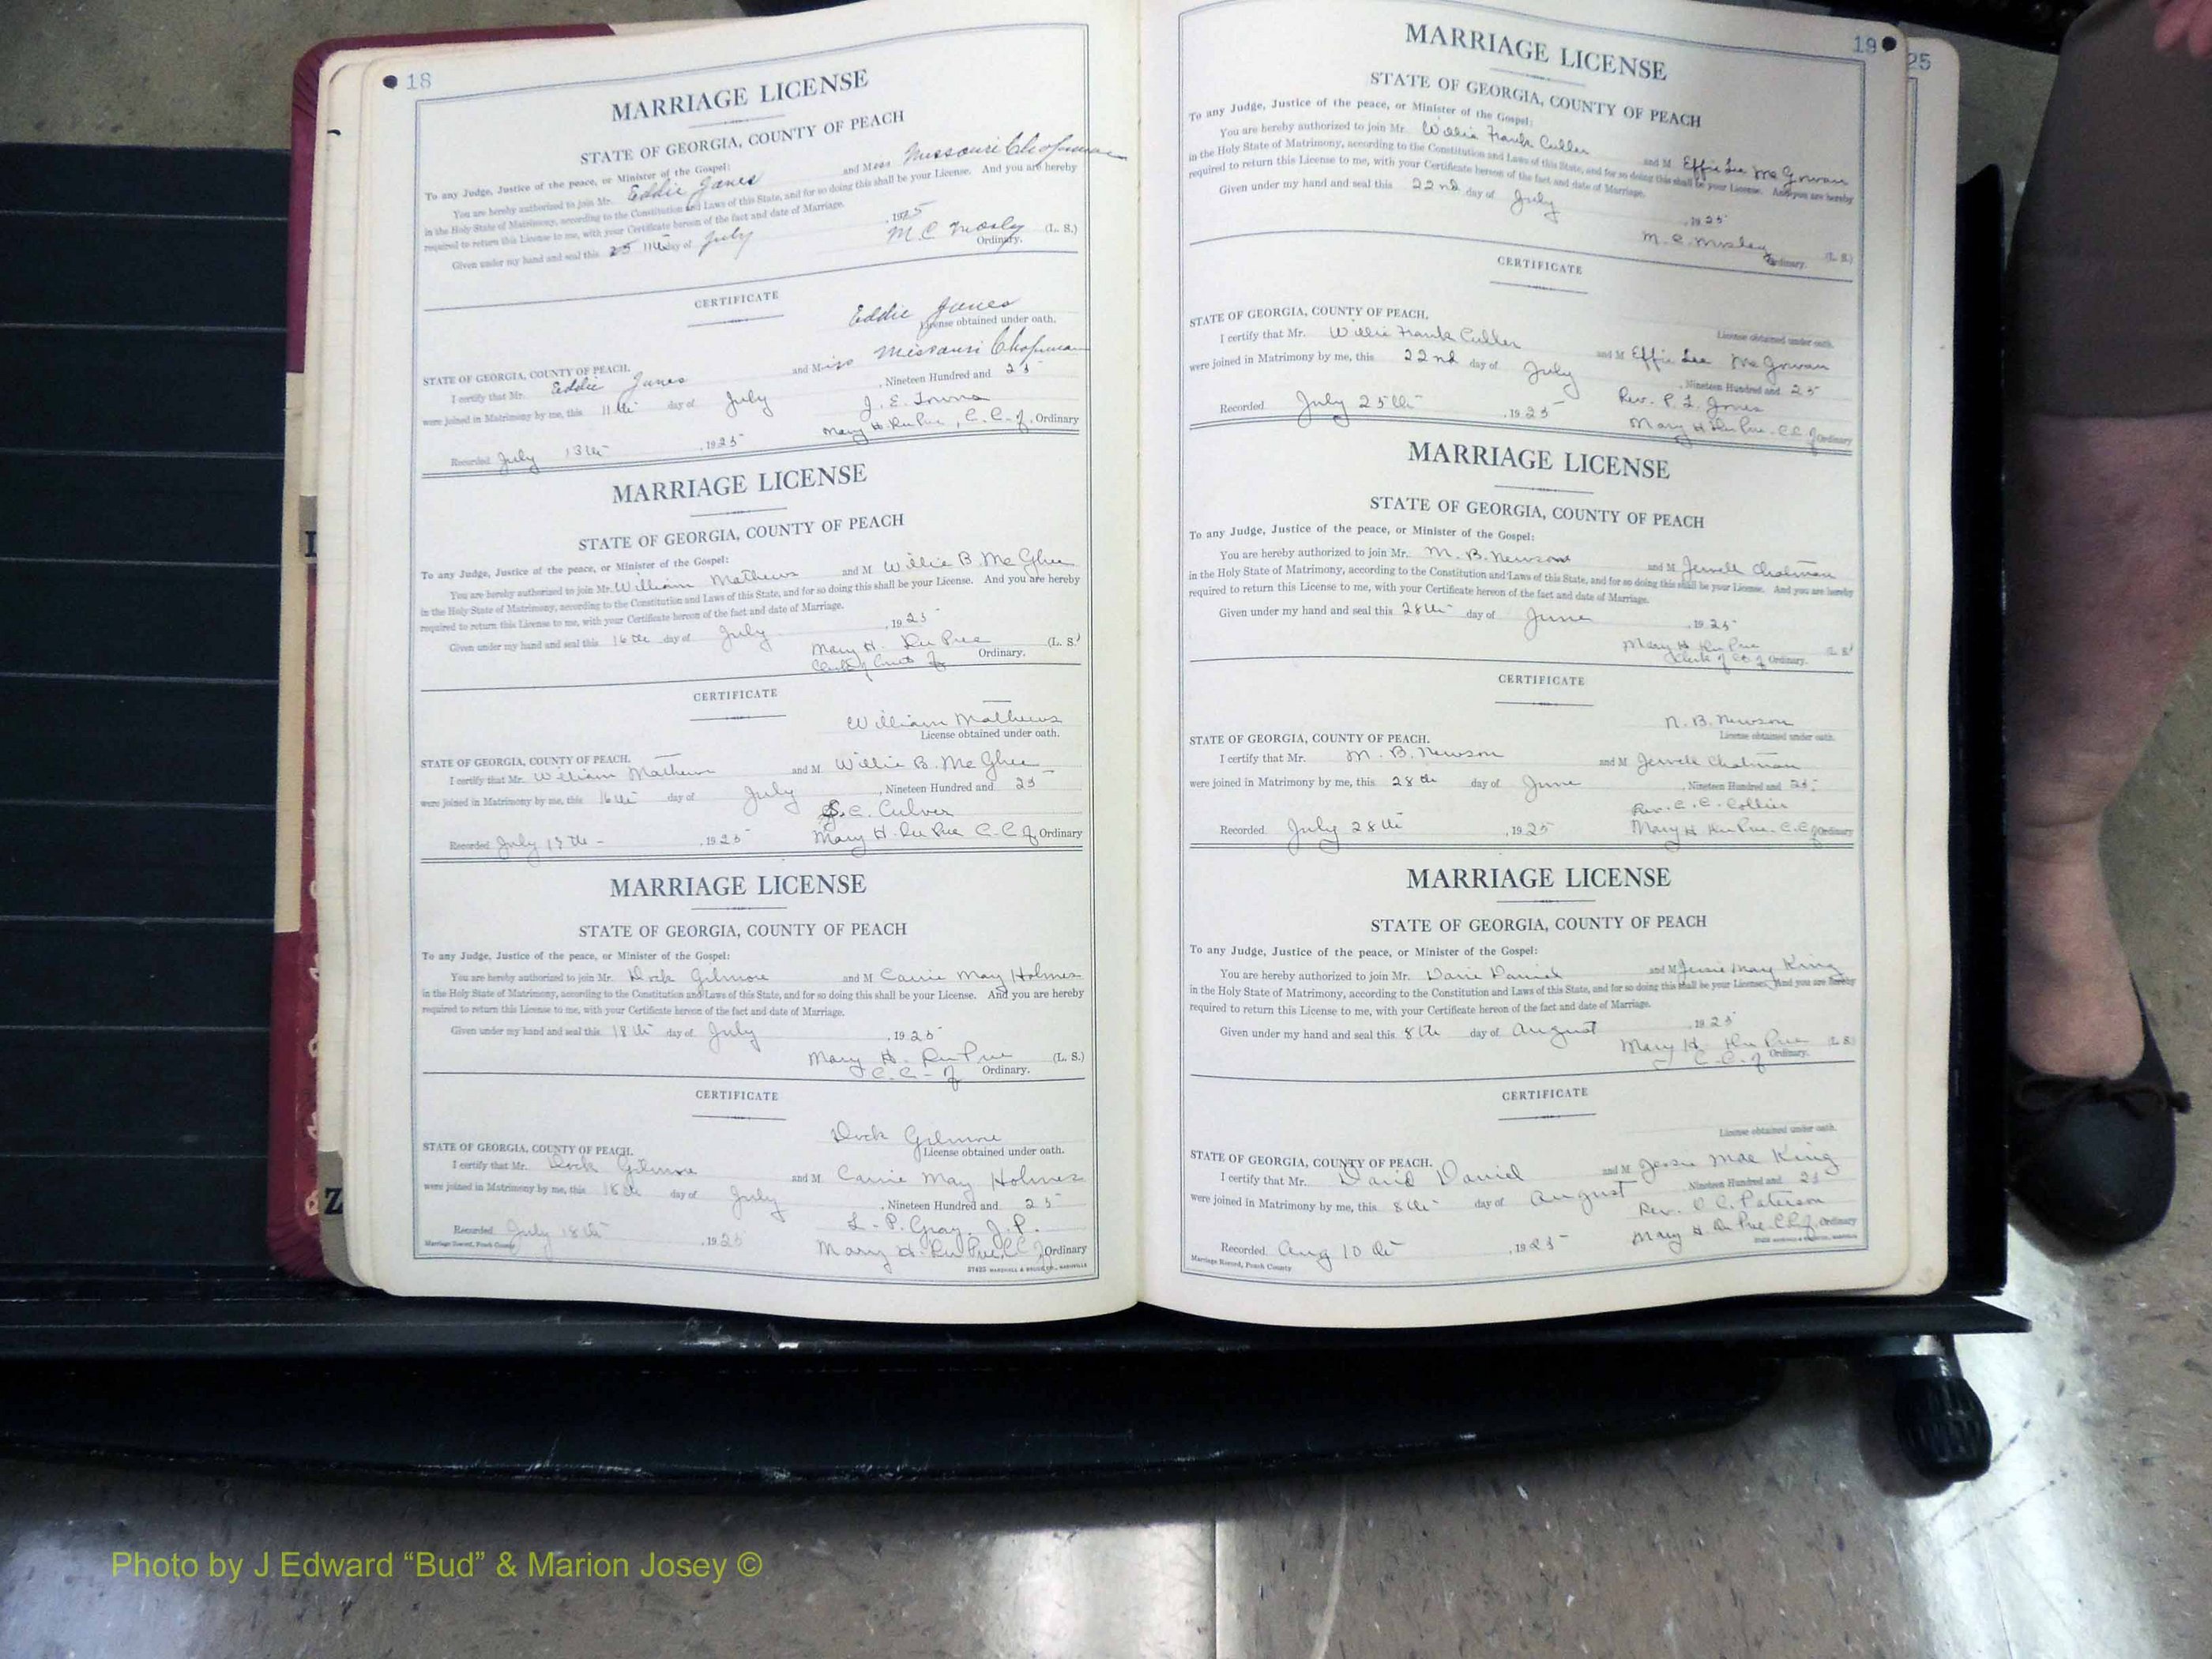 18
MARRIAGE LICENSE
STATE OF GEORGIA, COUNTY OF PEACH
To any Judge, Justice of the peace, or Minister of the Gospel:
You are hereby authorized to join Mr. Eddie Jones and Miss Missouri Chapman
in the Holy State of Matrimony, according to the Constitution and Laws of this State, and for so doing this shall be your License. And you are hereby
required to return this License to me, with your Certificate hereon of the fact and date of Marriage.
Given under my hand and seal this day of July , 1925
M. C. Mosley (L. S.)
Ordinary.
CERTIFICATE
Eddie Jones
License obtained under oath.
STATE OF GEORGIA, COUNTY OF PEACH.
I certify that Mr. Eddie Jones and Miss Missouri Chapman
were joined in Matrimony by me, this 11th day of July , Nineteen Hundred and 25
J. E.
Recorded July 13th , 1925 Mary H. DuPree, C. C. of Ordinary
MARRIAGE LICENSE
STATE OF GEORGIA, COUNTY OF PEACH
To any Judge, Justice of the peace, or Minister of the Gospel:
You are hereby authorized to join Mr. William Mathews and M Willie B. McGhee
in the Holy State of Matrimony, according to the Constitution and Laws of this State, and for so doing this shall be your License. And you are hereby
required to return this License to me, with your Certificate hereon of the fact and date of Marriage.
Given under my hand and seal this 16th day of July , 1925
Mary H. DuPree (L. S.)
Ordinary.
CERTIFICATE
William Mathews
License obtained under oath.
STATE OF GEORGIA, COUNTY OF PEACH.
I certify that Mr. William Mathews and M Willie B. McGhee
were joined in Matrimony by me, this 16th day of July , Nineteen Hundred and 25
C. Culver
Recorded July 17th - , 1925 Mary H. DuPree C. C. of Ordinary
MARRIAGE LICENSE
STATE OF GEORGIA, COUNTY OF PEACH
To any Judge, Justice of the peace, or Minister of the Gospel:
You are hereby authorized to join Mr. Dock Gilmore and M Carrie May Holmes
in the Holy State of Matrimony, according to the Constitution and Laws of this State, and for so doing this shall be your License. And you are hereby
required to return this License to me, with your Certificate hereon of the fact and date of Marriage.
Given under my hand and seal this 18th day of July , 1925
Mary H. DuPree (L. S.)
C. C. of Ordinary.
CERTIFICATE
Dock Gilmore
License obtained under oath.
STATE OF GEORGIA, COUNTY OF PEACH.
I certify that Mr. Dock Gilmore and M Carrie May Holmes
were joined in Matrimony by me, this 18th day of July , Nineteen Hundred and 25
L. P. Gray, J. P.
Recorded July 18th , 1925 Mary H. DuPree, C C of Ordinary
Marriage Record, Peach County
19
MARRIAGE LICENSE
STATE OF GEORGIA, COUNTY OF PEACH
To any Judge, Justice of the peace, or Minister of the Gospel:
You are hereby authorized to join Mr. Willie Frank Culler and M Effie Lee McGowan
in the Holy State of Matrimony, according to the Constitution and Laws of this State, and for so doing this shall be your License. And you are hereby
required to return this License to me, with your Certificate hereon of the fact and date of Marriage.
Given under my hand and seal this 22nd day of July , 1925
M. C. Mosley (L. S.)
Ordinary.
CERTIFICATE
License obtained under oath.
STATE OF GEORGIA, COUNTY OF PEACH.
I certify that Mr. Willie Frank Culler and M Effie Lee McGowan
were joined in Matrimony by me, this 22nd day of July , Nineteen Hundred and 25
Rev. P. L. Jones
Recorded July 25th , 1925 Mary H DuPree. C.C. of Ordinary
MARRIAGE LICENSE
STATE OF GEORGIA, COUNTY OF PEACH
To any Judge, Justice of the peace, or Minister of the Gospel:
You are hereby authorized to join Mr. M. B. Newsom and M Jewell Chatman
in the Holy State of Matrimony, according to the Constitution and Laws of this State, and for so doing this shall be your License. And you are hereby
required to return this License to me, with your Certificate hereon of the fact and date of Marriage.
Given under my hand and seal this 28th day of June , 1925
Mary H DuPree (L. S.)
Clerk of Ct of Ordinary.
CERTIFICATE
N. B. Newson
License obtained under oath.
STATE OF GEORGIA, COUNTY OF PEACH.
I certify that Mr. M. B. Newson and M Jewell Chatman
were joined in Matrimony by me, this 28th day of June , Nineteen Hundred and 25
Rev. C. C. Collier
Recorded July 28th , 1925 Mary H DuPree. C. C of Ordinary
MARRIAGE LICENSE
STATE OF GEORGIA, COUNTY OF PEACH
To any Judge, Justice of the peace, or Minister of the Gospel:
You are hereby authorized to join Mr. Daniel and M Jessie May King
in the Holy State of Matrimony, according to the Constitution and Laws of this State, and for so doing this shall be your License. And you are hereby
required to return this License to me, with your Certificate hereon of the fact and date of Marriage.
Given under my hand and seal this 8th day of August , 1925
Mary H. DuPree (L. S.)
C. C. of Ordinary.
CERTIFICATE
License obtained under oath.
STATE OF GEORGIA, COUNTY OF PEACH.
I certify that Mr. David Daniel and M Jessie Mae King
were joined in Matrimony by me, this 8th day of August Nineteen Hundred and 25
Rev. O. C. Paterson
Recorded Aug 10th , 1925 Mary H DuPree C C of Ordinary
Marriage Record, Peach County
25
Z
Photo by J Edward “Bud” & Marion Josey ©